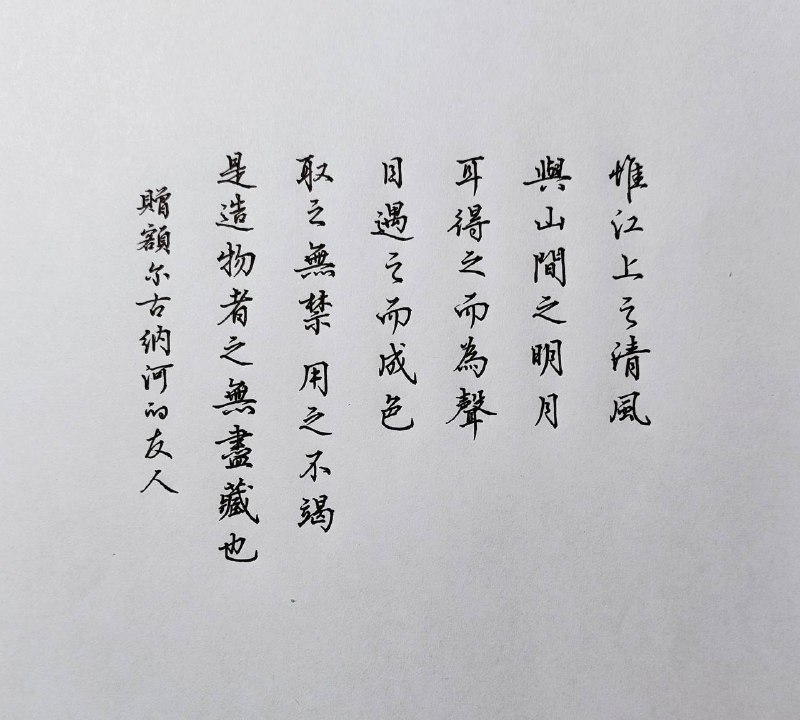 惟江上之清風
與山間之明月
耳得之而為聲
目遇之而成色
取之無禁 用之不竭
是造物者之無盡藏也
贈額尔古纳河的友人